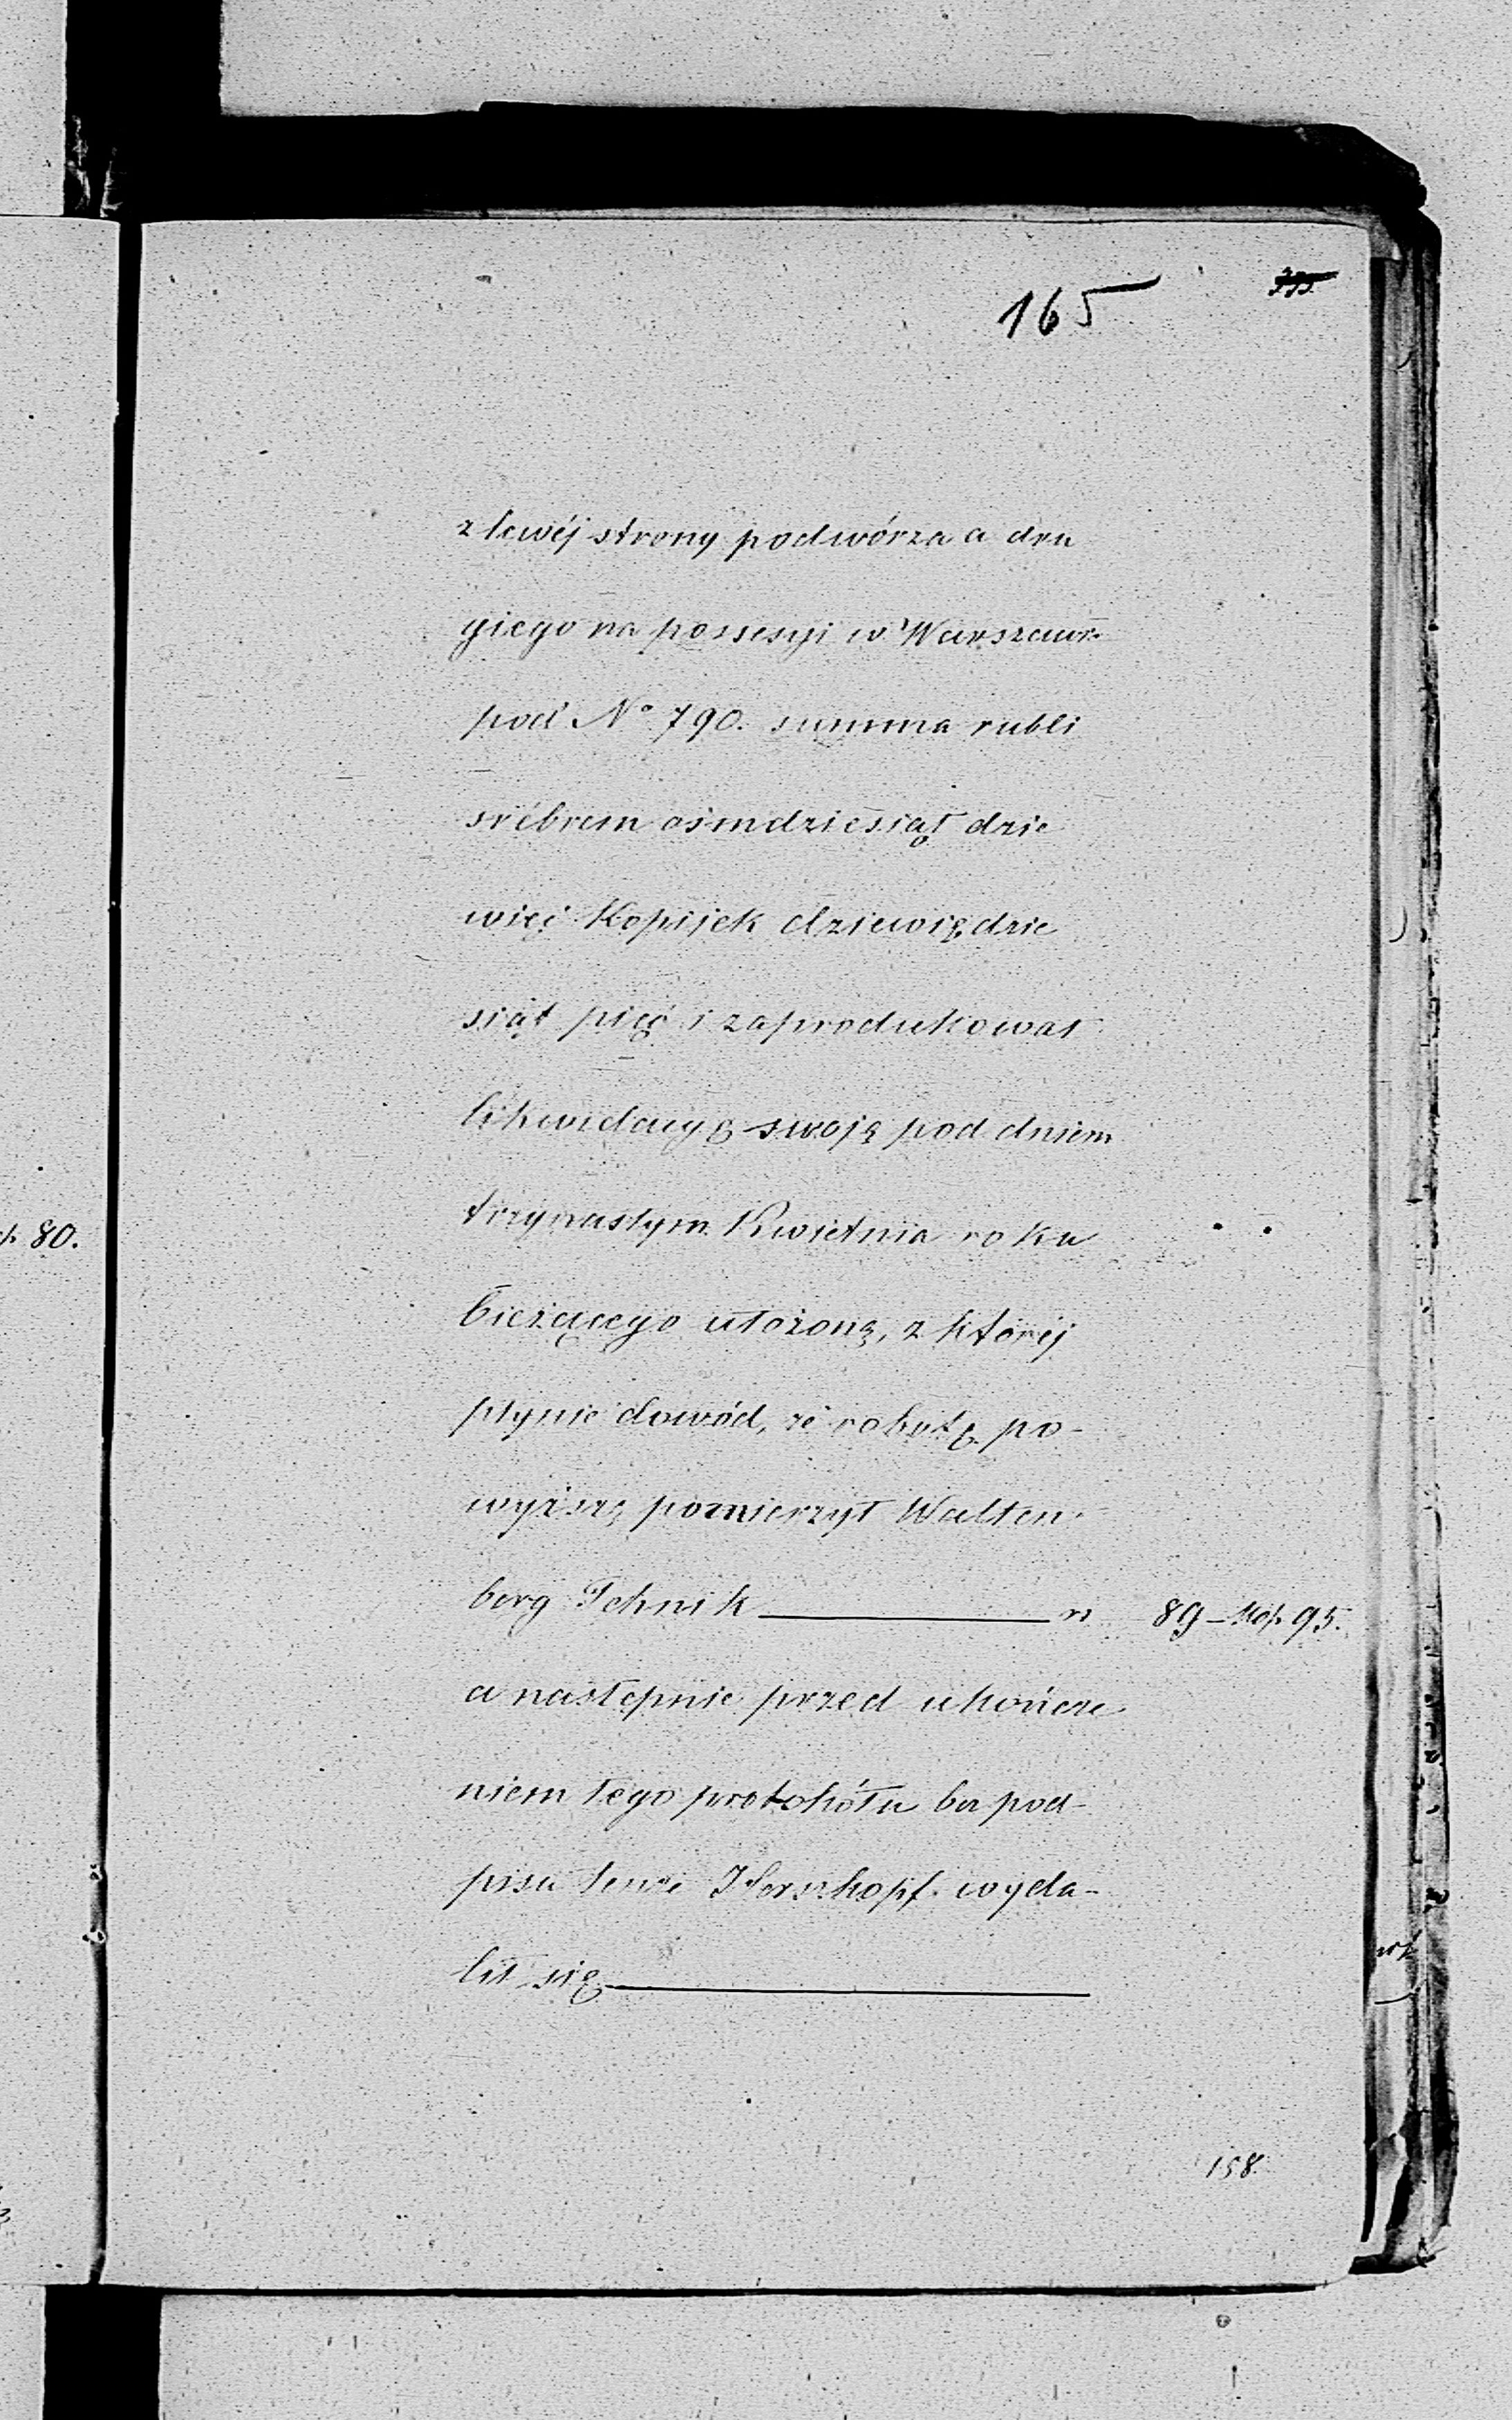 165
z lewéj strony podwórza a dru
giego na possesyi w Warszawie
pod No 790. summa rubli
srébrem ośmdziesiąt dzie
więć Kopijek dziewiędzie
siąt pięć i zaprodukował
likwidacyę swoją pod dniem
trzynastym Kwietnia roku
bieżącego ułożoną, z któréj
płynie dowód, że robotę po-
wyższą pomierzył Walten
berg Tehnik rs 89 – Kop. 95.
80.
a następnie przed ukończe
niem tego protokółu bez pod-
pisu tenże Herszkopf wyda-
lił się
158.